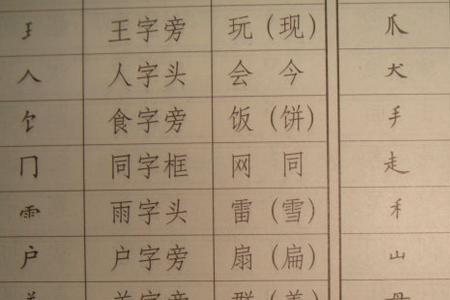 𤣩 王字旁 玩（现） 爪
人 人字头 会 今 犬
饣 食字旁 饭（饼） 手
冂 同字框 网 同 走
⻗ 雨字头 雷（雪） 禾
户 户字旁 扇（扁） 山
羊字旁 群（羊） 母